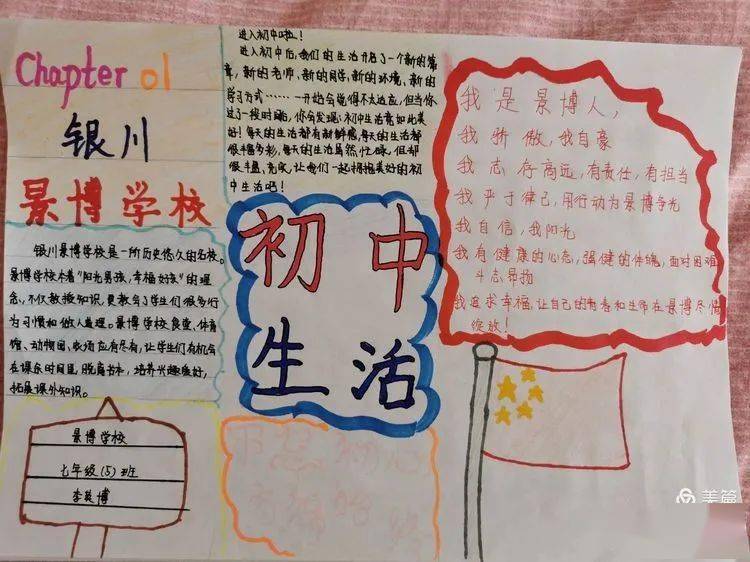 Chapter 01
银川
景博学校
银川景博学校是一所历史悠久的名校。
景博学校本着“阳光男孩,幸福女孩”的理
念,不仅教授知识,更教会了学生们很多行
为习惯和做人道理。景博学校食堂、体育
馆、动物园、农场应有尽有,让学生们有机会
在课余时间里,脱离书本,培养兴趣爱好,
拓展课外知识。
景博学校
七年级(5)班
李英博
进入初中啦!
进入初中后,我们的生活开启了一个新的篇
章,新的老师、新的同学、新的环境、新的
学习方式……一开始会觉得不太适应,但当你
过了一段时间后,你会发现:初中生活竟如此美
好!每天的生活都有新鲜感,每天的生活都
很丰富多彩,每天的生活虽然忙碌,但却
很丰盈、充实,让我们一起拥抱美好的初
中生活吧!
初中
生活
不忘初心
我是景博人,
我骄傲,我自豪
我志存高远,有责任,有担当
我严于律己,用行动为景博争光
我自信,我阳光
我有健康的心态,强健的体魄,面对困难
斗志昂扬
我追求幸福,让自己的青春和生命在景博尽情
绽放!
美篇